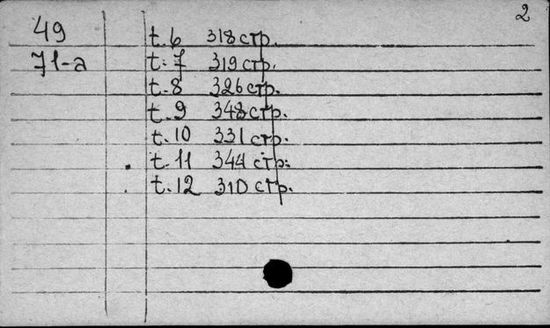 2
49 t. 6 318 стр.
71-a t. 7 319 стр.
t. 8 326 стр.
t. 9 348 стр.
t. 10 331 стр.
t. 11 344 стр.
t. 12 310 стр.